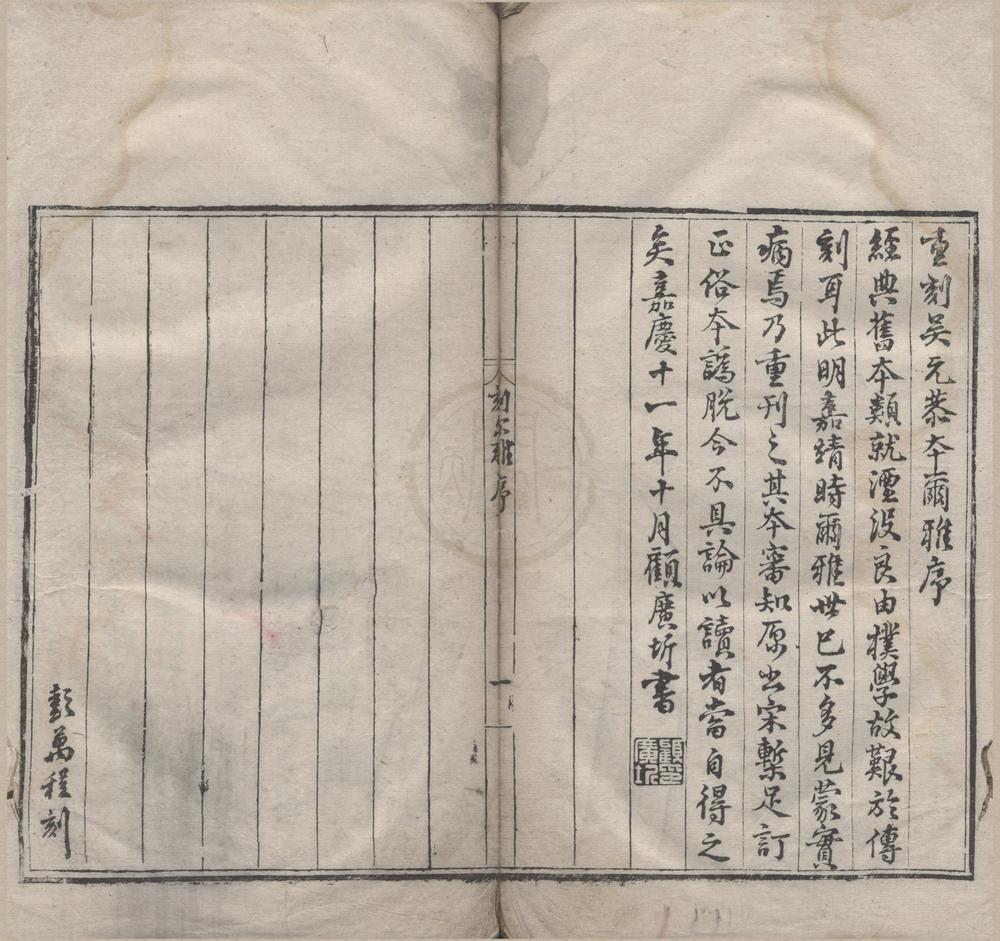 重刻吳元恭本爾雅序
經典舊本類就湮没良由樸學故艱於傳
刻耳此明嘉靖時爾雅世已不多見蒙實
病焉乃重刊之其本審知原出宋槧足訂
正俗本譌脫今不具論以讀者當自得之
矣嘉慶十一年十月顧廣圻書
顧廣圻印
刻尔雅序
一
彭萬程刻